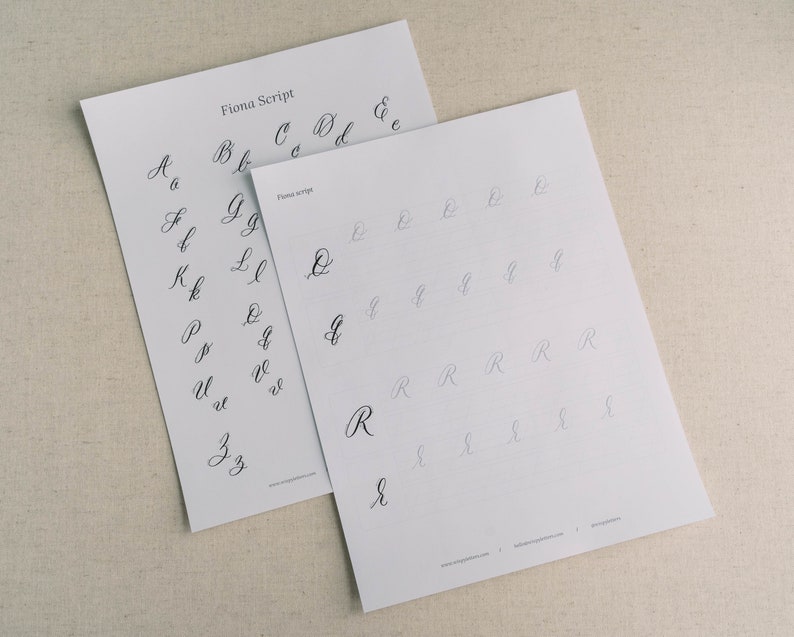 Fiona Script
A a B b C c D d E e
F f G g
K k L l
P p Q q
U u V v
Z z
www.wispyletters.com
Fiona script
Q Q Q Q Q Q
q q q q q q
R R R R R R
r r r r r r
www.wispyletters.com / hello@wispyletters.com / @wispyletters